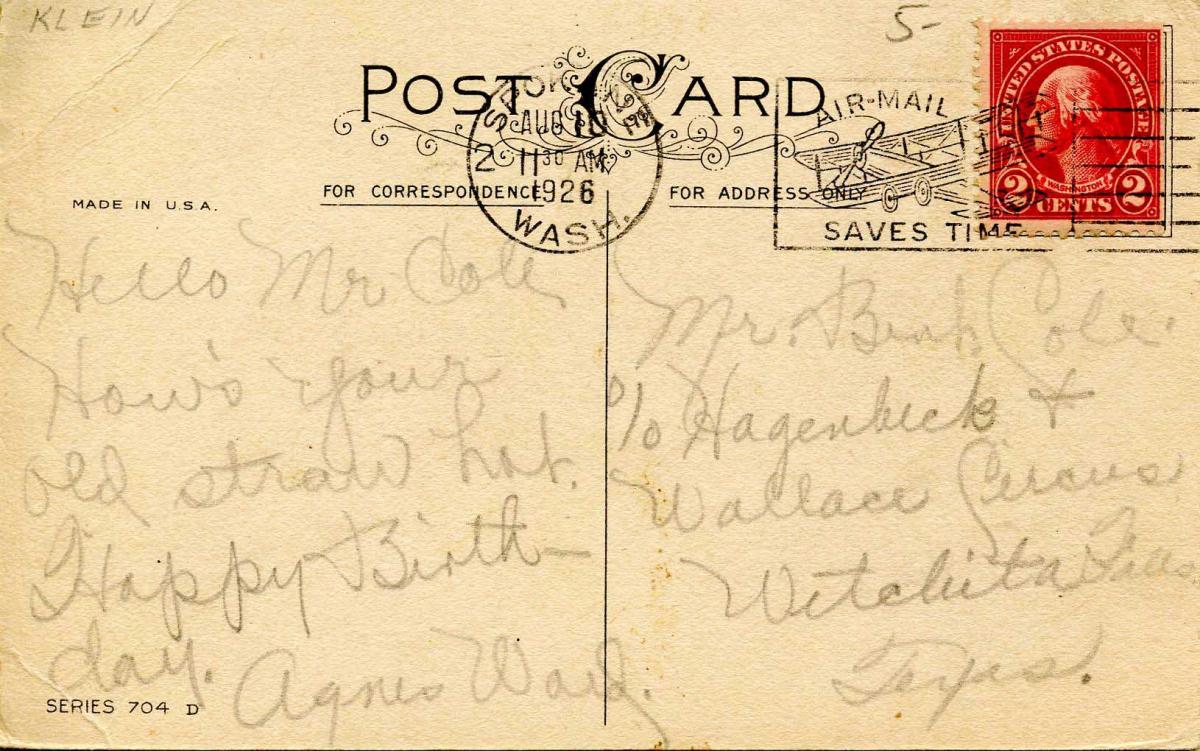 KLEIN
5-
POST CARD
SPOKANE
AUG 10
2 11 30 AM
1926
WASH.
AIR-MAIL
SAVES TIME
UNITED STATES POSTAGE
WASHINGTON
2 CENTS 2
FOR CORRESPONDENCE
FOR ADDRESS ONLY
MADE IN U.S.A.
Hello Mr Cole,
How's your
old straw hat.
Happy Birth-
day.
Agnes Ward.
Mr. Bink Cole.
c/o Hagenbeck &
Wallace Circus
Witchita Falls
Texas.
SERIES 704 D